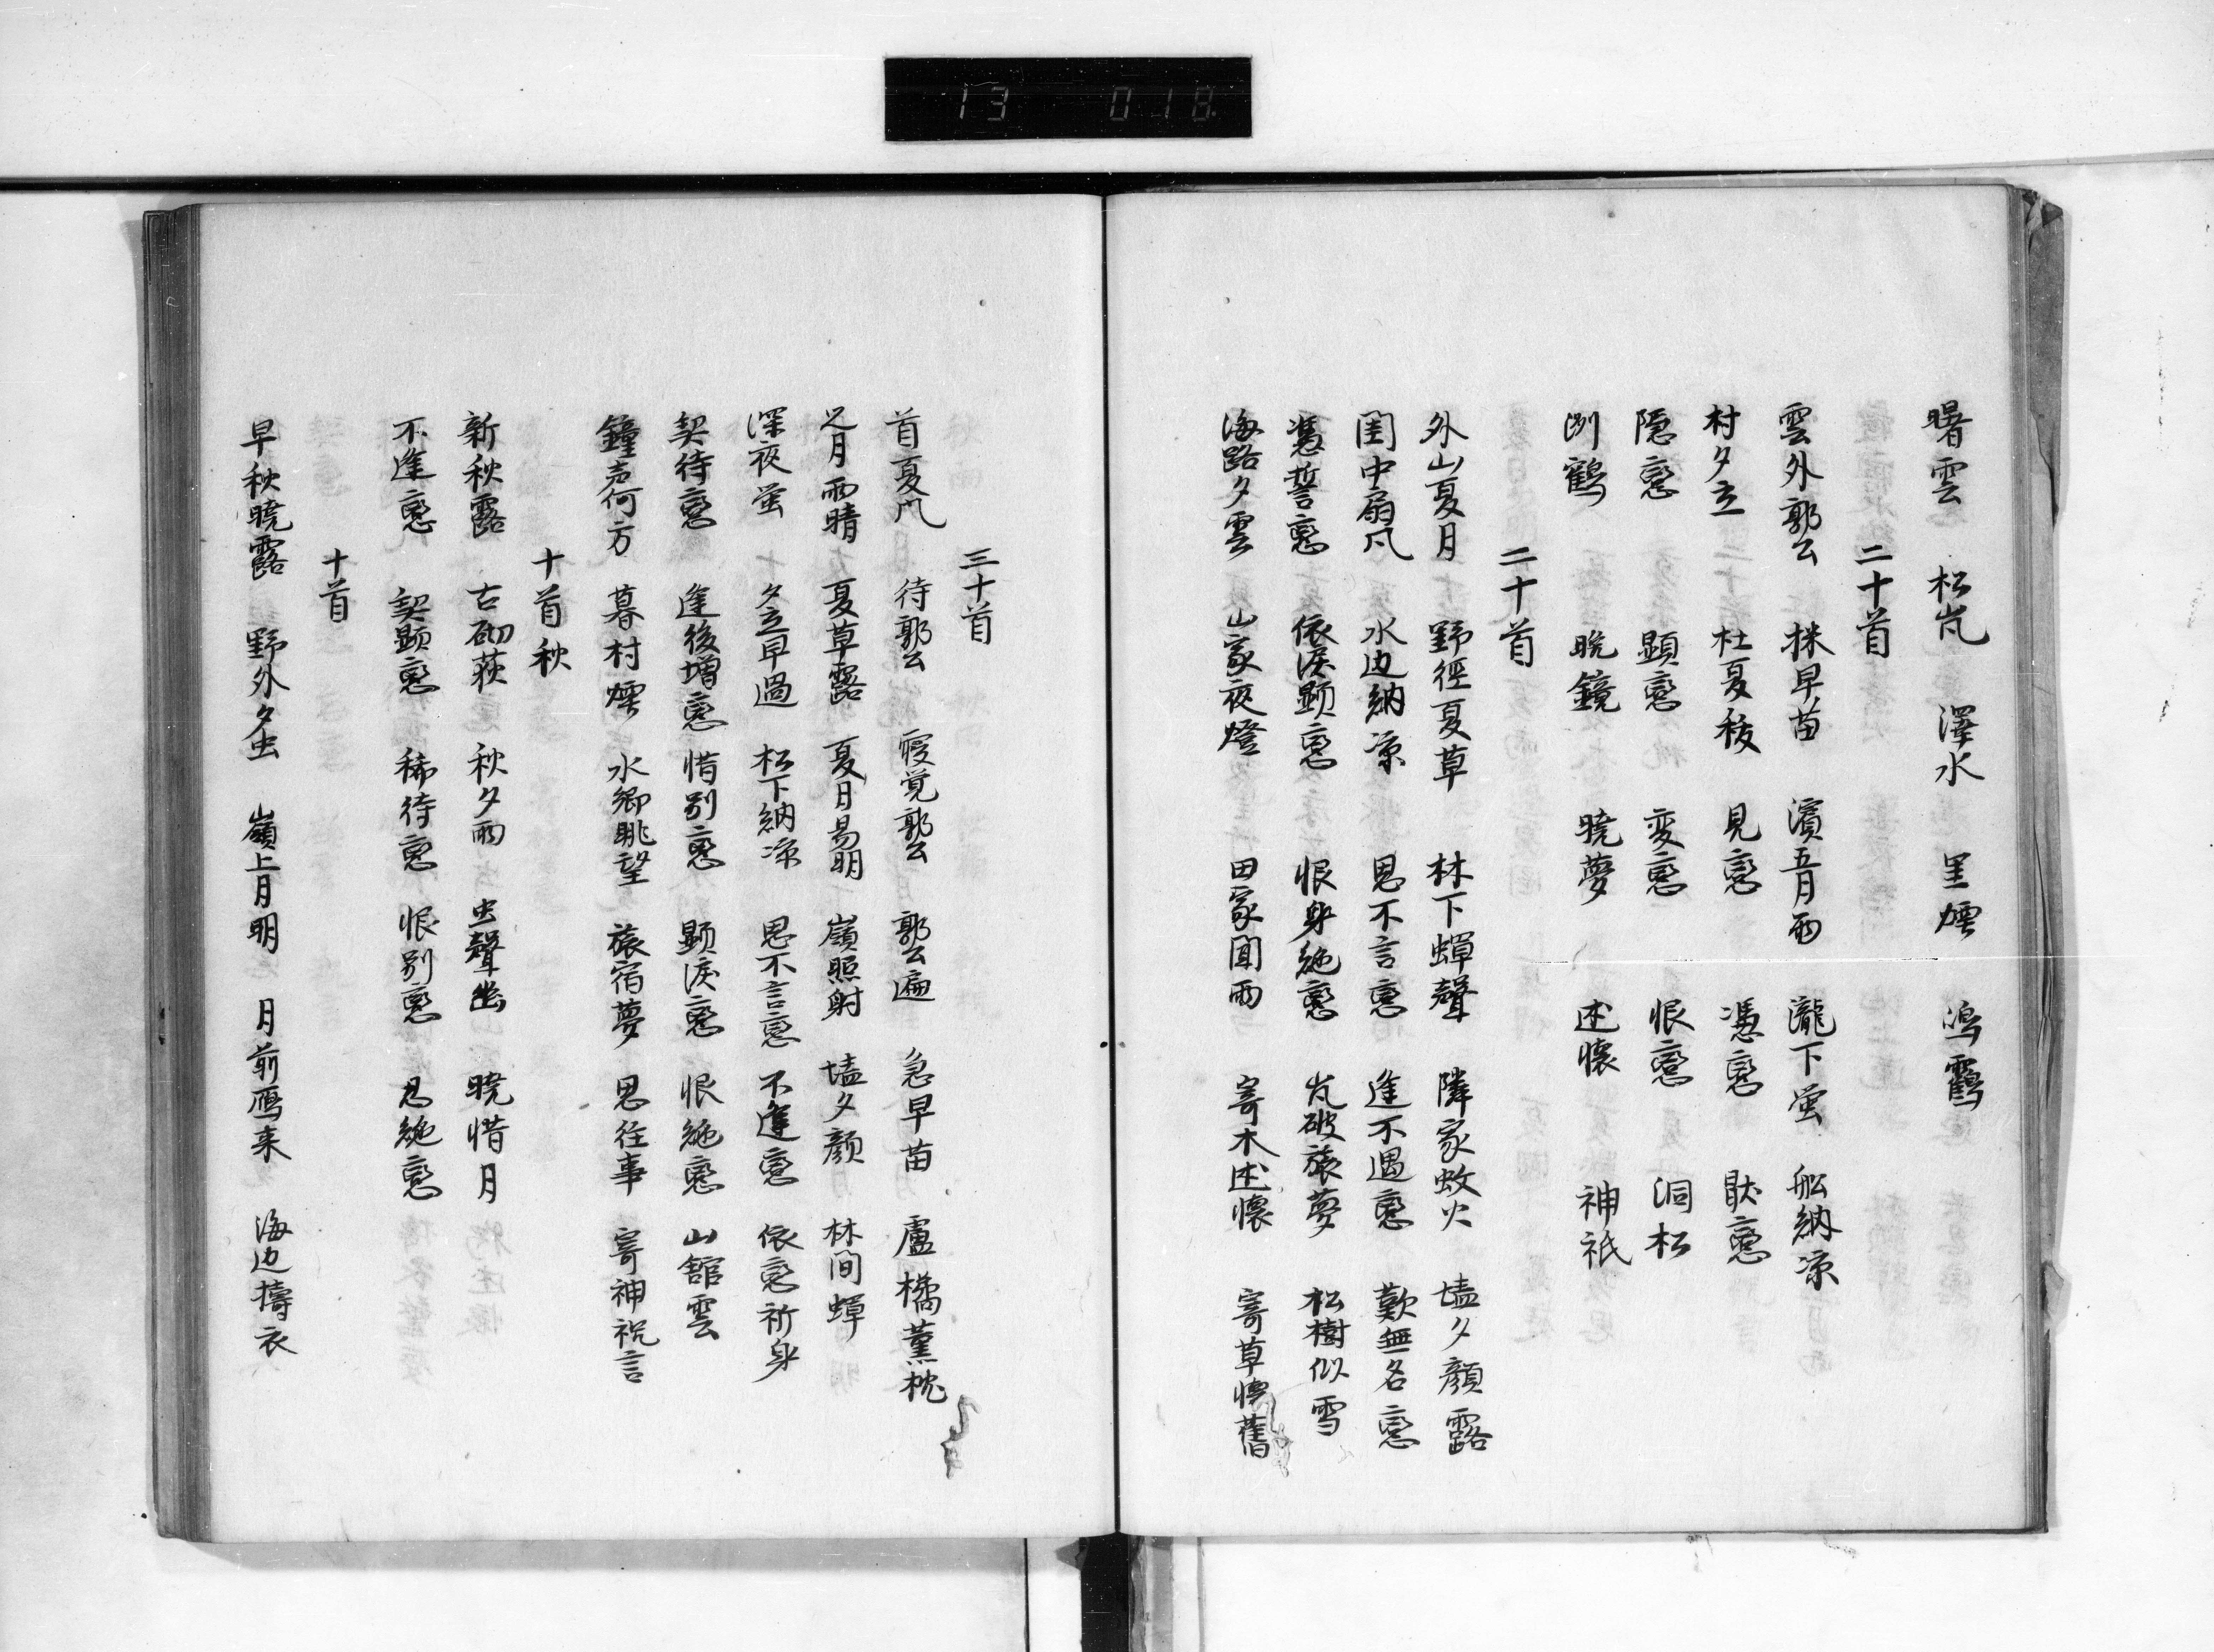 13 018
曙雲 松嵐 澤水 里煙 鳴鶴
二十首
雲外郭公 採早苗 濱五月雨 瀧下蛍 船納凉
村夕立 杜夏秡 見戀 憑戀 猒戀
隠戀 顕戀 変戀 恨戀 洞松
渕鶴 晩鐘 暁夢 述懐 神祇
二十首
外山夏月 野徑夏草 林下蟬聲 隣家蚊火 墻夕顔露
閨中扇風 水辺納凉 思不言戀 逢不遇戀 歎無名戀
憑誓戀 依涙顕戀 恨身絶戀 嵐破旅夢 松樹似雪
海路夕雲 山家夜燈 田家聞雨 寄木述懐 寄草懐舊
三十首
首夏風 待郭公 寝覚郭公 郭公遍 急早苗 盧橘薫枕
五月雨晴 夏草露 夏月易明 嶺照射 墻夕顔 林間蟬
深夜蛍 夕立早過 松下納凉 思不言戀 不逢戀 依戀祈身
契待戀 逢後増戀 惜別戀 顕涙戀 恨絶戀 山舘雲
鐘声何方 暮村煙 水郷眺望 旅宿夢 思往事 寄神祝言
十首秋
新秋露 古砌萩 秋夕雨 虫聲幽 暁惜月
不逢戀 契顕戀 稀待戀 恨別戀 忍絶戀
十首
早秋暁露 野外夕虫 嶺上月明 月前鴈来 海辺擣衣